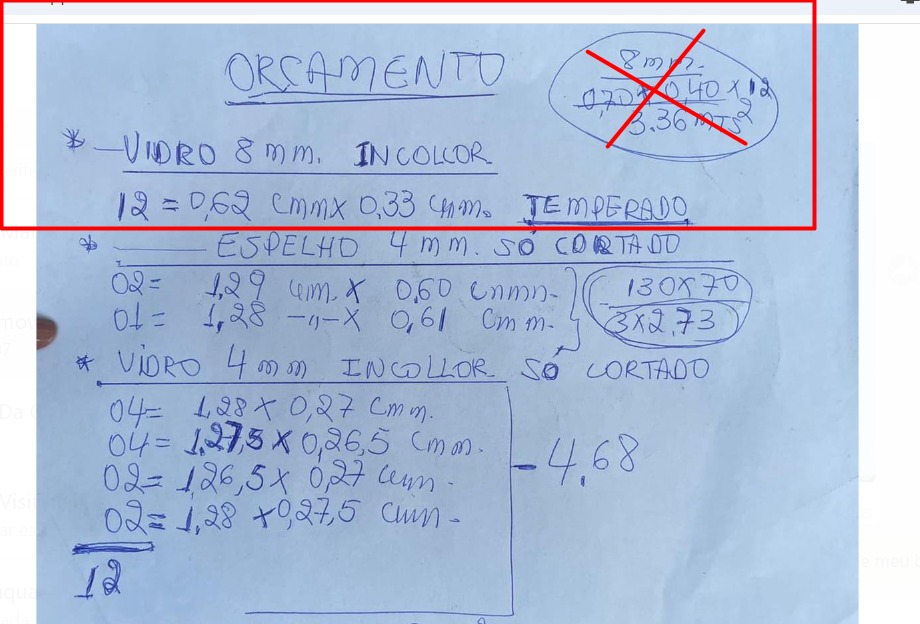 ORÇAMENTO
8 mm.
0,70 x 0,40 x 12
3.36 MTS²
* — VIDRO 8 mm. INCOLLOR
12 = 0,62 cmm x 0,33 cmm. TEMPERADO
* ESPELHO 4 mm. SÓ CORTADO
02= 1,29 cm. x 0,60 cmm.
01= 1,28 -„- x 0,61 cmm.
130x70
3x2,73
* VIDRO 4 mm INCOLLOR SÓ CORTADO
04= 1,28 x 0,27 cmm.
04= 1,27,5 x 0,26,5 cmm.
02= 1,26,5 x 0,27 cmm.
02= 1,28 x 0,27,5 cmm.
- 4.68
12